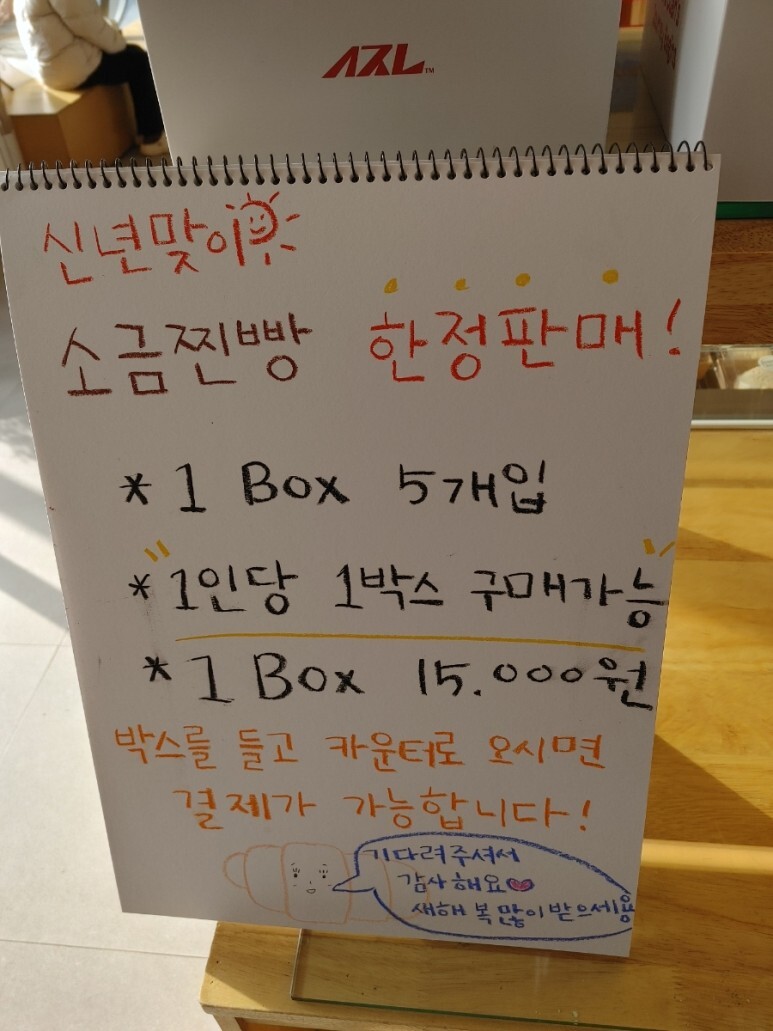 ASL™
신년맞이
소금찐빵 한정판매!
* 1 Box 5개입
* 1인당 1박스 구매가능
* 1 Box 15.000원
박스를 들고 카운터로 오시면
결제가 가능합니다!
기다려주셔서
감사해요
새해 복 많이 받으세용